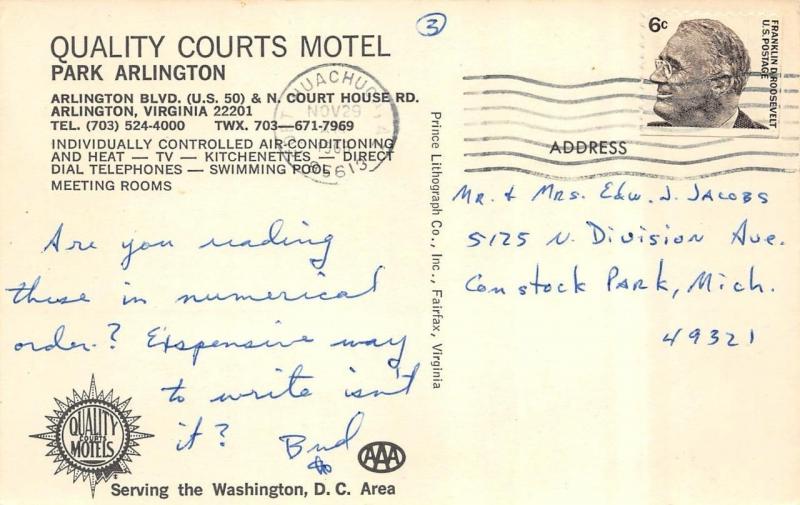 3
QUALITY COURTS MOTEL
PARK ARLINGTON
ARLINGTON BLVD. (U.S. 50) & N. COURT HOUSE RD.
ARLINGTON, VIRGINIA 22201
TEL. (703) 524-4000 TWX. 703—671-7969
INDIVIDUALLY CONTROLLED AIR-CONDITIONING
AND HEAT — TV — KITCHENETTES — DIRECT
DIAL TELEPHONES — SWIMMING POOL
MEETING ROOMS
HUACHUCA
NOV 29
85613
Are you reading
these in numerical
order? Exspensive way
to write isn't
it? Bud
QUALITY
COURTS
MOTELS
AAA
Serving the Washington, D. C. Area
Prince Lithograph Co., Inc., Fairfax, Virginia
6c
FRANKLIN D. ROOSEVELT
U.S. POSTAGE
ADDRESS
Mr. & Mrs. Edw. J. Jacobs
5125 N. Division Ave.
Comstock Park, Mich.
49321